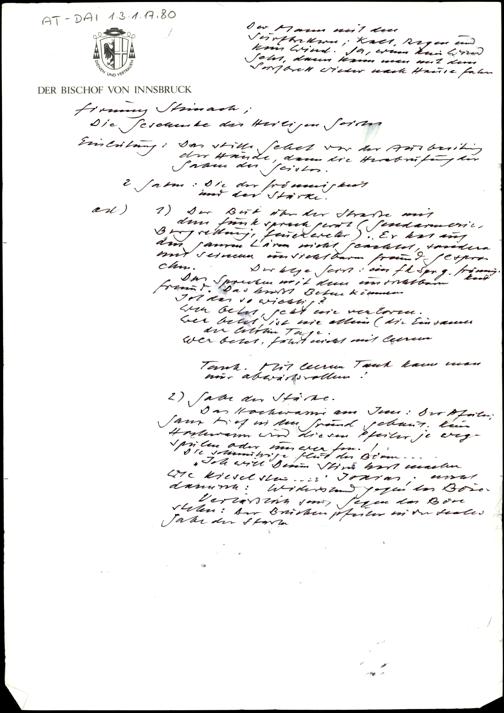 AT-DAI 13.1.A.80
Der Mann mit dem
Surfbrett; Kalt, Regen und
kein Wind. Ja, wenn kein Wind
geht, dann kann man mit dem
Surfbrett wieder nach Hause fahren
DER BISCHOF VON INNSBRUCK
Firmung Steinach;
Die Geschenke des Heiligen Geistes
Einleitung: Das stille Gebet vor der Ausbreitung
der Hände, dann die Herabrufung der
Gaben des Geistes.
2 Gaben: Die der Frömmigkeit
und der Stärke.
ad) 1) Der Bub über der Straße mit
dem Funksprechgerät (Gendarmerie,
Bergrettung, Feuerwehr). Er hat auf
den ganzen Lärm nicht geachtet, sondern
mit seinem unsichtbaren Freund gespro-
chen. Der Hlge Geist:
Das Sprechen mit dem unsichtbaren
Freund. Das heißt Beten können
Ist das so wichtig?
Wer betet geht nie verloren.
Wer betet ist nie allein (die Einsamen
der letzten Tage.
Wer betet, fährt nicht mit leerem
Tank. Mit leerem Tank kann man
nur abwärtsrollen!
2) Gabe der Stärke.
Das Hochwasser am Inn: Der Pfeiler,
ganz tief in den Grund gebaut. Kein
Hochwasser wird diesen Pfeiler je weg-
spülen oder umwerfen!
Die schmutzige Flut des Bösen....
"Ich will Deine Stirn hart machen
wie Kieselstein...."
Widerstand gegen das Böse.
Verlässlich sein, gegen das Böse
stehen: Der Brückenpfeiler in der Seele:
Gabe der Stärke